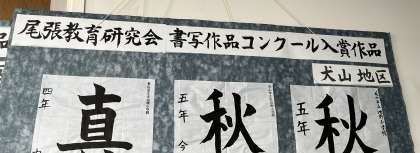 尾張教育研究会 書写作品コンクール入賞作品
犬山地区
秋
五年
秋
五年 今
真
四年